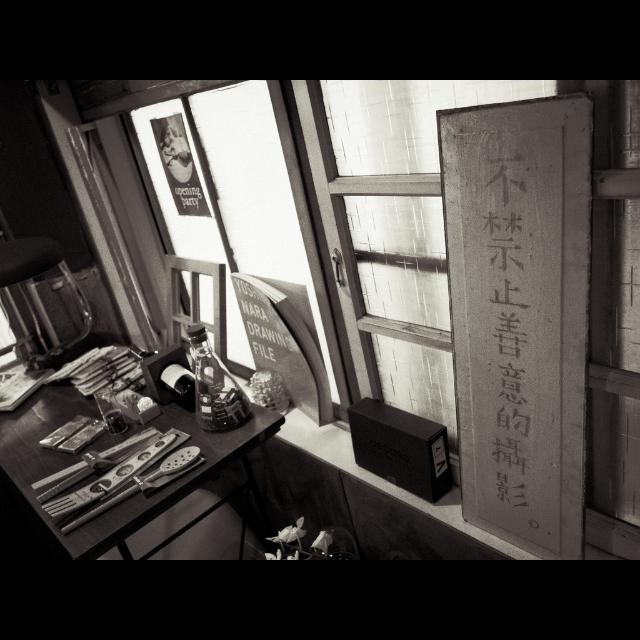 opening
party
NARA
DRAWING
FILE
不禁止善意的攝影。